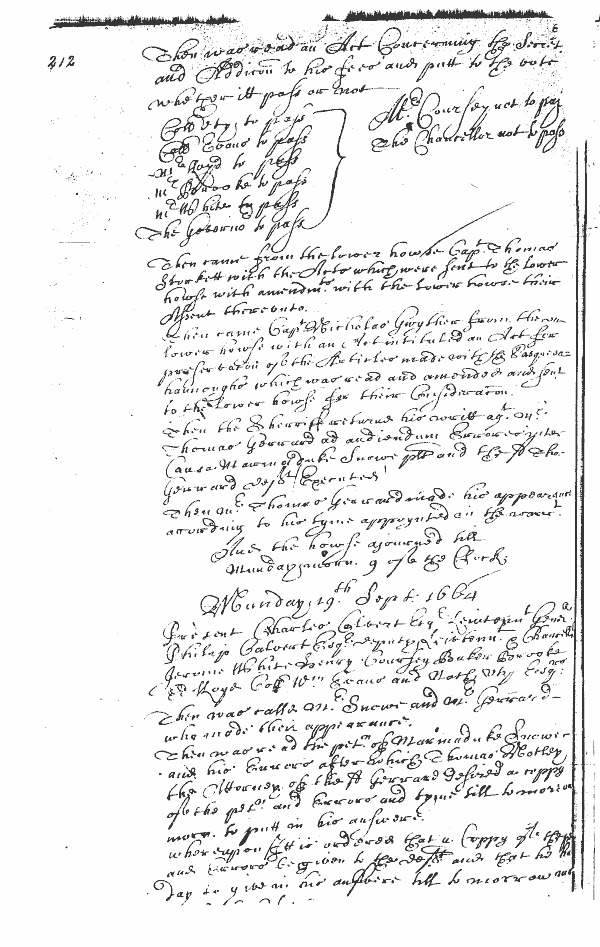 212
Then was read an Act Concerning the Secret
and Addicon to his fees and putt to the vote
whether itt pass or not
Coll Uty, to pass
Coll Evans to pass
mr Lloyd to pass
mr Brooke to pass
mr White to pass
The Governo to pass
Mr Coursey not to pas
The Chancellor not to pass
Then came from the lower howse Capt Thomas
Stockett with the Acts which were sent to the lower
howse with amendmts with the lower howse their
Assent thereunto.
Then came Capt Nicholas Gwyther from the
lower howse with an Act intituled an Act for
preservacon of the Articles made with the Sasquea=
hannoughs which was read and amended and sent
to the lower howse for their Consideracon.
Then the Sherriff returns his writt agt mr
Thomas Gerrard ad audiendum Errores inter
Causa Marmaduke Snowe plt and the sd Tho.
Gerrard deft Executed
Then mr Thomas Gerrard made his appearance
according to his tyme appoynted in the
And the howse ajourned till
Munday morn. 9 of the Clock
Munday, 19th Sept. 1664
Present Charles Calvert Esqr Leivetennt Genll
Philip Calvert Esqr deputy Leivetenn. & Chancellr
Jerome White Henry Coursey Baker Brooke
Edw Lloyd Coll Wm Evans and Nath. Uty Esqrs
Then was calld Mr Snowe and mr Gerrard
who made their appearance.
Then was read the petn of Marmaduke Snowe
and his Errors after which Thomas Notley
the Attorney of the sd Gerrard desired a coppy
of the petn and Errors and tyme till to morrow
morn. to putt in his answere.
whereupon Itt is ordered that a Coppy of the
and Errors be given to the deft and that he
day to give in his answere till to morrow